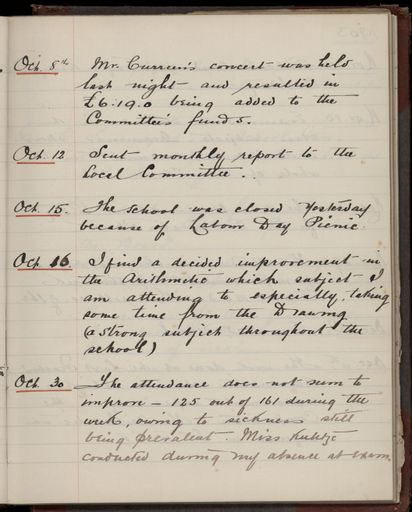 Oct. 8th Mr. Curren's concert was held
last night and resulted in
£6.19.0 being added to the
Committee's funds.
Oct. 12 Sent monthly report to the
Local Committee.
Oct. 15. The School was closed yesterday
because of Labour Day Picnic.
Oct 16. I find a decided improvement in
the Arithmetic which subject I
am attending to especially, taking
some time from the Drawing
(a strong subject throughout the
school)
Oct. 30 The attendance does not seem to
improve – 125 out of 161 during the
week, owing to sickness still
being prevalent. Miss
conducted during my absence at exam.